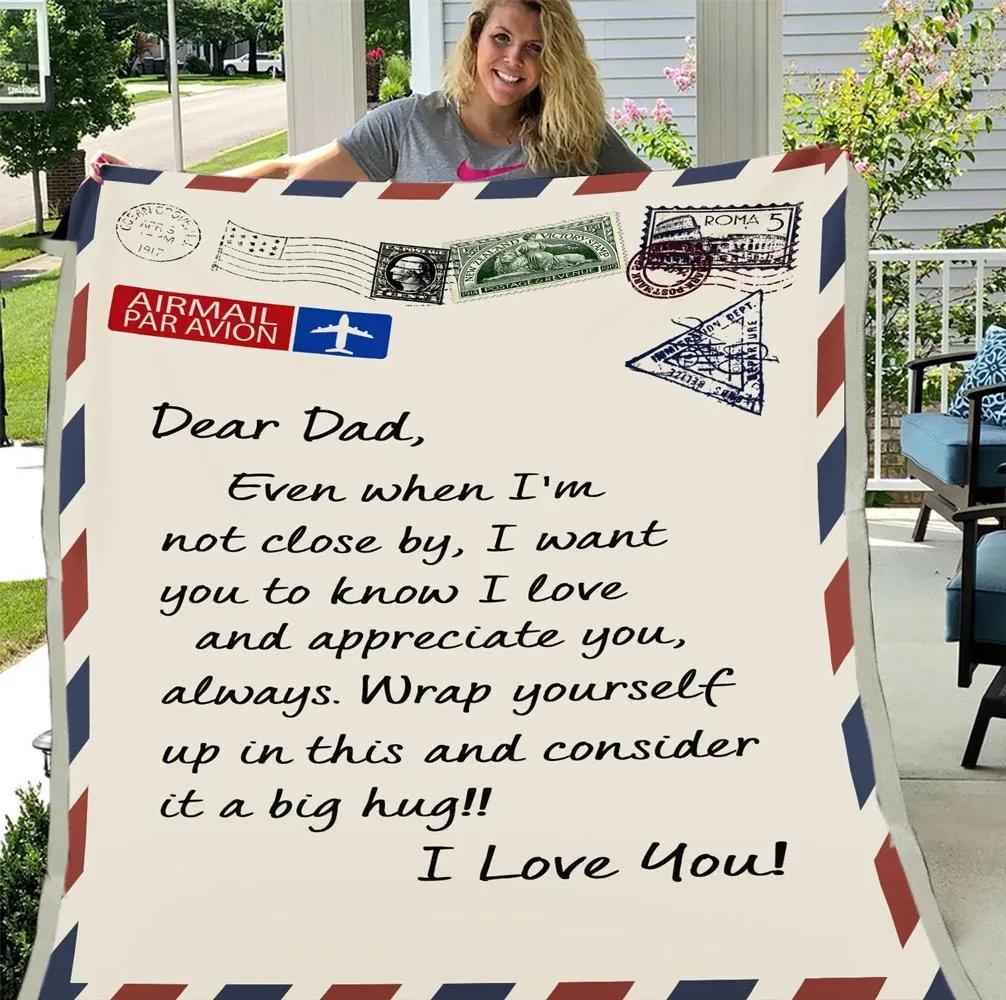 APR 5
1917
U.S. POSTAGE
POSTAGE & REVENUE
ROMA 5
AIRMAIL
PAR AVION
IMMIGRATION DEPT.
DEPARTURE
BELIZE
Dear Dad,
Even when I'm
not close by, I want
you to know I love
and appreciate you,
always. Wrap yourself
up in this and consider
it a big hug!!
I Love You!